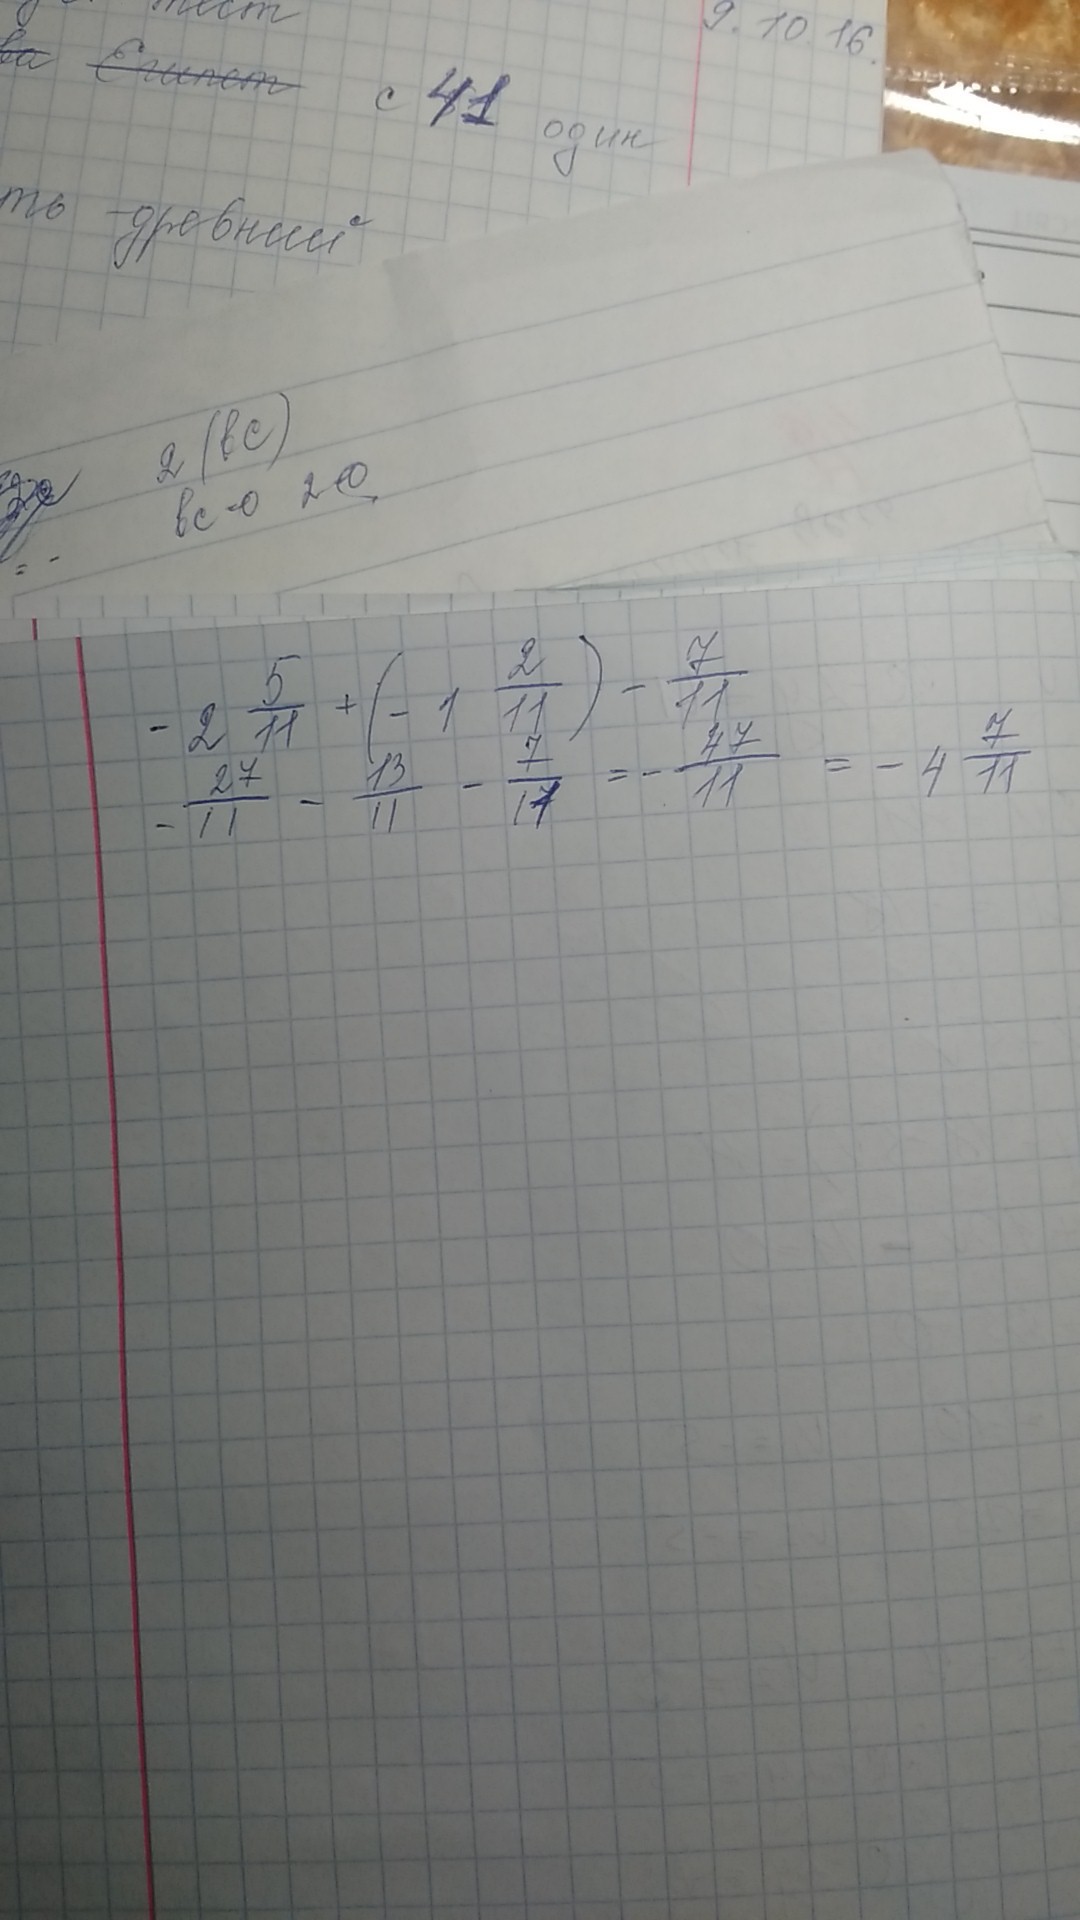 тест
9. 10. 16.
ва Египет с 41 один
ть древний
2 (вс)
вс-о 2-о
= -
- 2 5/11 + (- 1 2/11) - 7/11
- 27/11 - 13/11 - 7/11 = - 47/11 = - 4 7/11